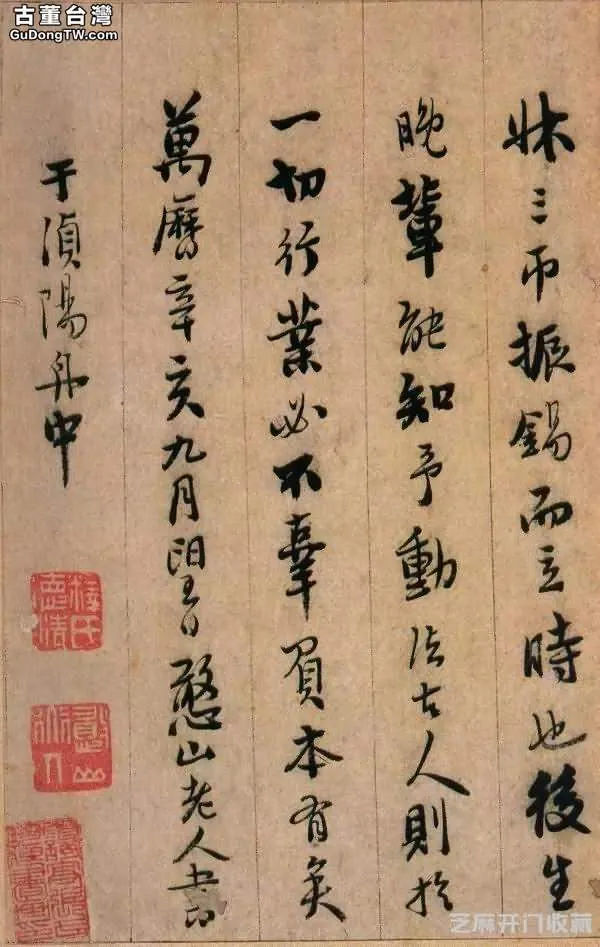 古董台灣
GuDongTW.com
牀三帀振錫而立時也後生
晚輩能知予動法古人則於
一切行業必不辜負本有矣
萬曆辛亥九月望日憨山老人書
于湞陽舟中
芝麻开门收藏